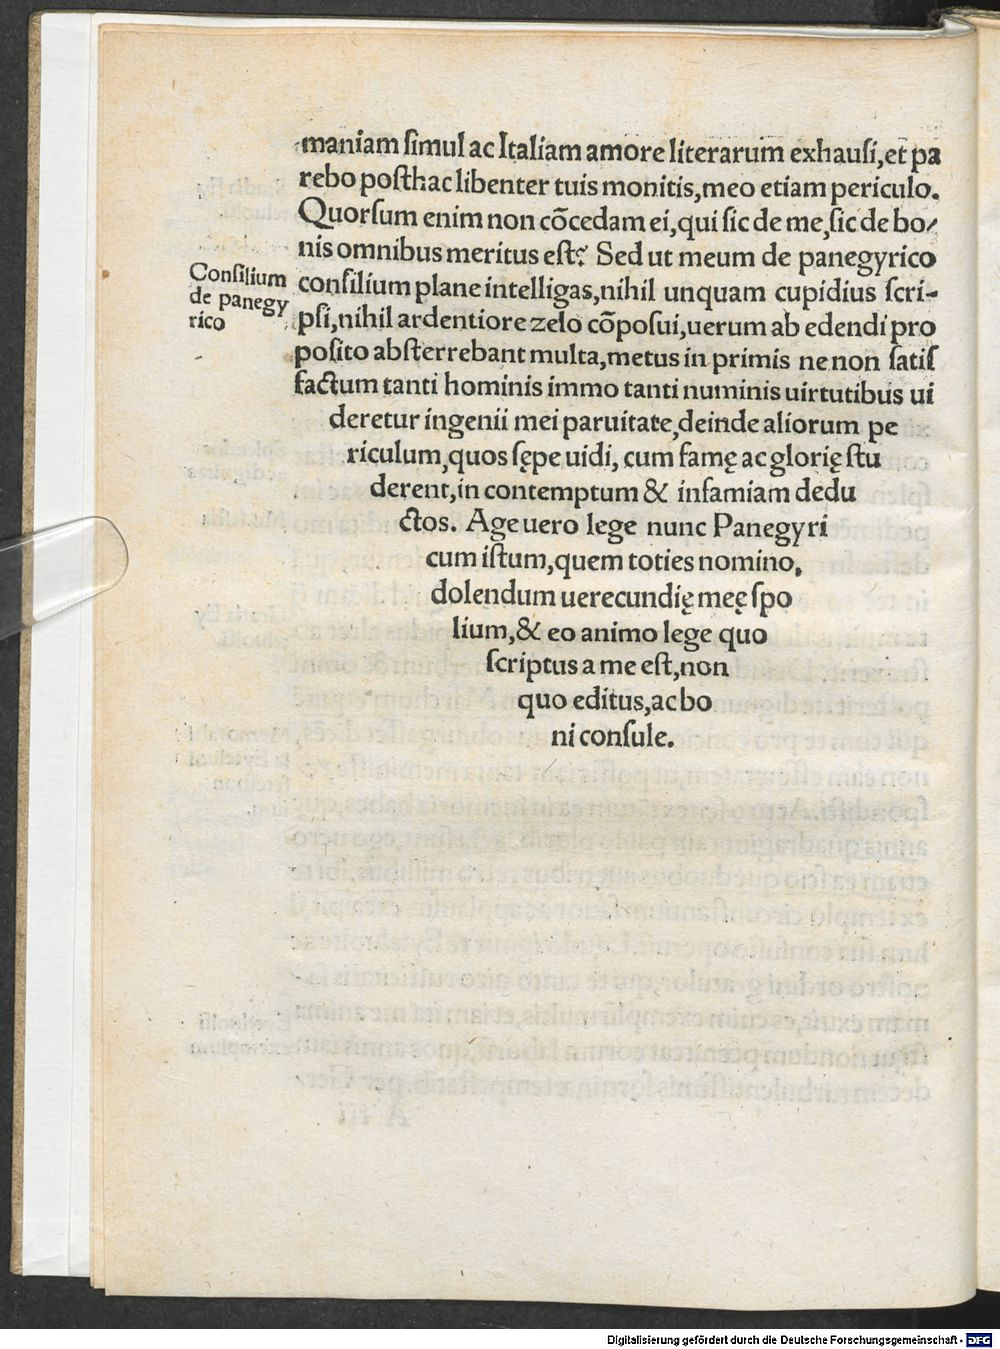 maniam ſimul ac Italiam amore literarum exhauſi, et pa
rebo poſthac libenter tuis monitis, meo etiam periculo.
Quorſum enim non cõcedam ei, qui ſic de me, ſic de bo/
nis omnibus meritus eſt? Sed ut meum de panegyrico
Conſilium
de panegy
rico
conſilium plane intelligas, nihil unquam cupidius ſcri-
pſi, nihil ardentiore zelo cõpoſui, uerum ab edendi pro
poſito abſterrebant multa, metus in primis ne non ſatiſ
factum tanti hominis immo tanti numinis uirtutibus ui
deretur ingenii mei paruitate, deinde aliorum pe
riculum, quos ſępe uidi, cum famę ac glorię ſtu
derent, in contemptum & infamiam dedu
ctos. Age uero lege nunc Panegyri
cum iſtum, quem toties nomino,
dolendum uerecundię meę ſpo
lium, & eo animo lege quo
ſcriptus a me eſt, non
quo editus, ac bo
ni conſule.
Digitalisierung gefördert durch die Deutsche Forschungsgemeinschaft - DFG